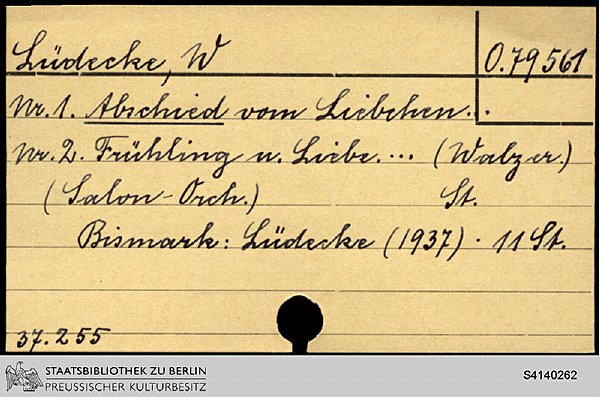 Lüdecke, W
O.79561
Nr. 1. Abschied vom Liebchen...
Nr. 2. Frühling u. Liebe. ... (Walzer.)
(Salon-Orch.) St.
Bismark: Lüdecke (1937). 11 St.
37.255
STAATSBIBLIOTHEK ZU BERLIN
PREUSSISCHER KULTURBESITZ
S4140262